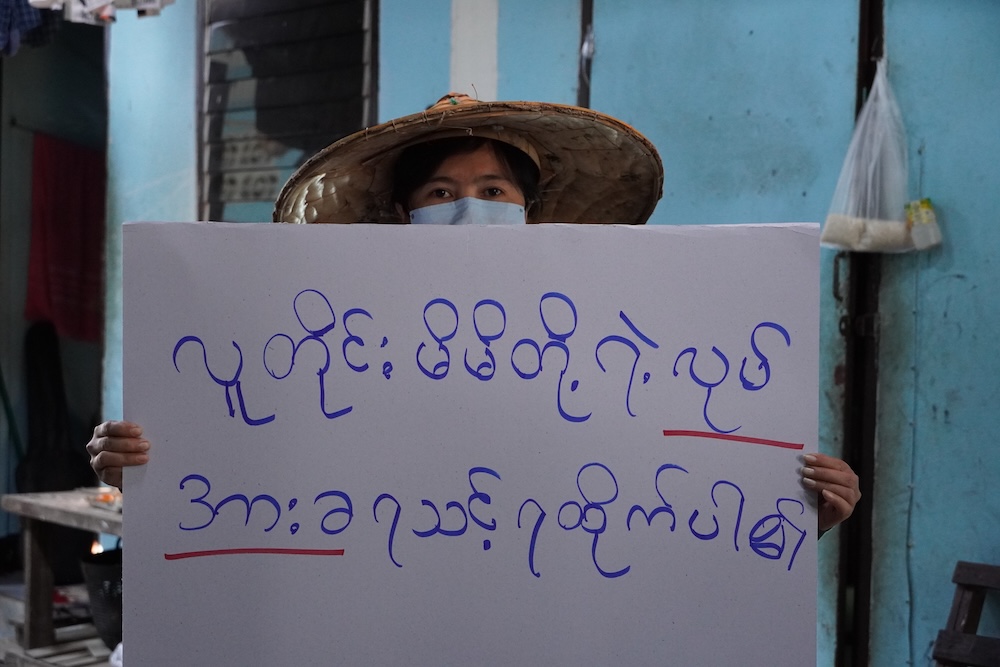 လူတိုင်းမိမိတို့ရဲ့လုပ်
အားခရသင့်ရထိုက်ပါ၏